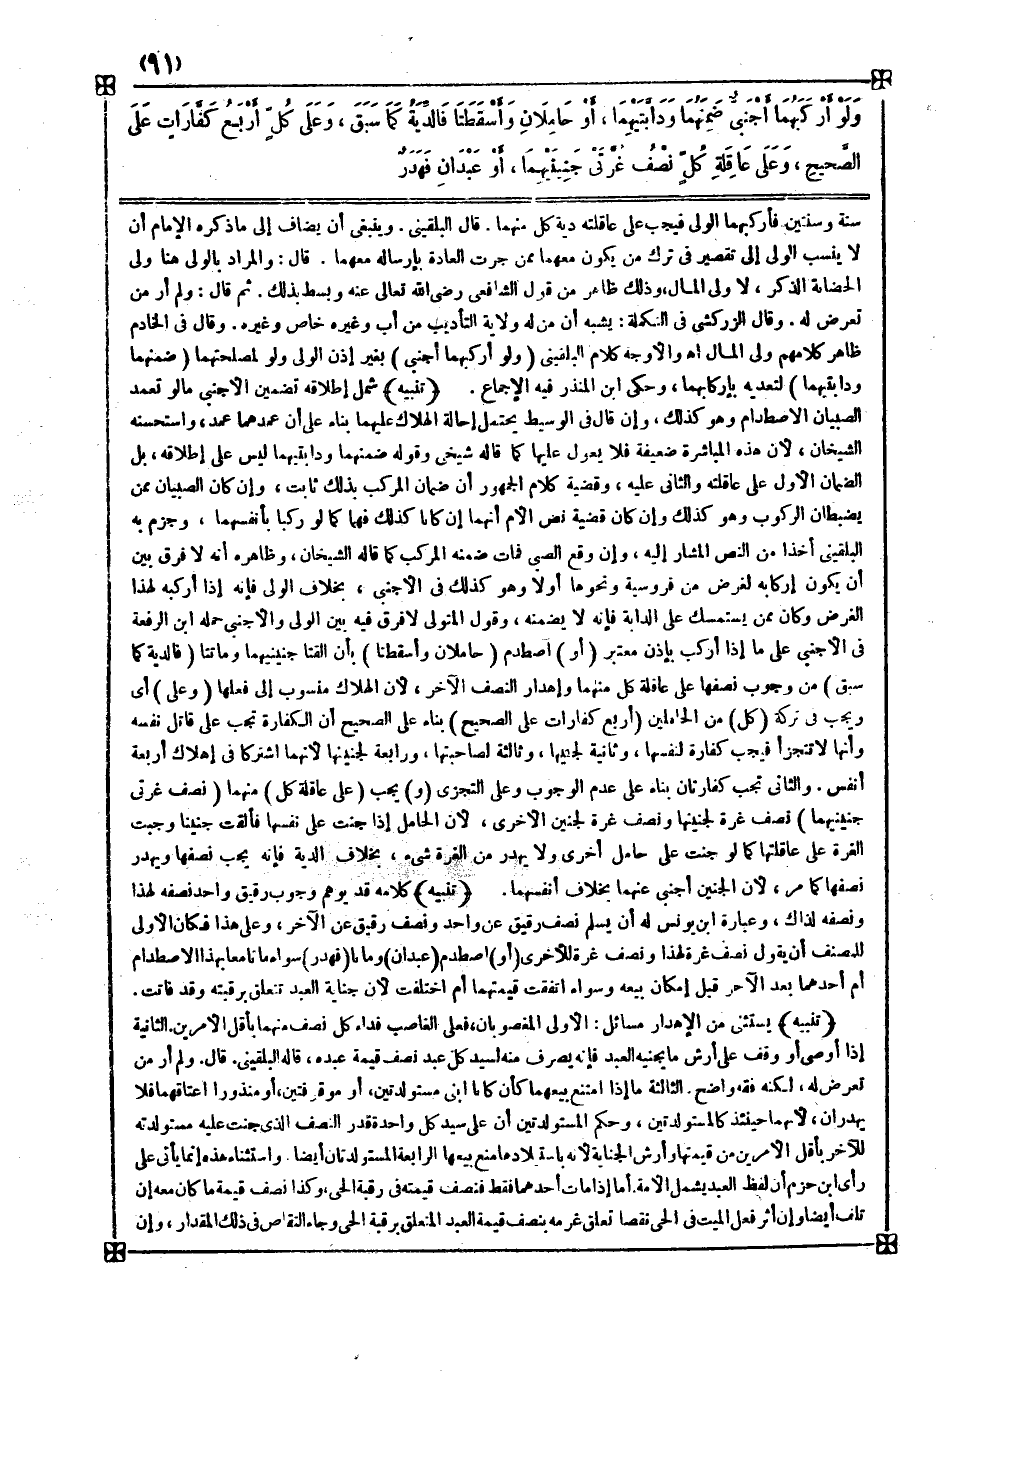 (٩١)
وَلَوْ أَرْكَبَهُمَا أَجْنَبِيٌّ ضَمِنَهُمَا وَدَابَّتَيْهِمَا ، أَوْ حَامِلَانِ وَأَسْقَطَتَا فَالدِّيَةُ كَمَا سَبَقَ ، وَعَلَى كُلٍّ أَرْبَعُ كَفَّارَاتٍ عَلَى
الصَّحِيحِ ، وَعَلَى عَاقِلَةِ كُلٍّ نِصْفُ غُرَّتَيْ جَنِينَيْهِمَا ، أَوْ عَبْدَانِ فَهَدَرٌ
سنة وسنتين فأركبهما الولى فيجب على عاقلته دية كل منهما . قال البلقينى . وينبغى أن يضاف إلى ماذكره الإمام أن
لا ينسب الولى إلى تقصير فى ترك من يكون معهما ممن جرت العادة بإرساله معهما . قال : والمراد بالولى هنا ولى
الحضانة الذكر ، لا ولى المـال، وذلك ظاهر من قول الشافعى رضى الله تعالى عنه وبسط بذلك . ثم قال : ولم أر من
تعرض له . وقال الزركشى فى التكملة : يشبه أن من له ولاية التأديب من أب وغيره خاص وغيره . وقال فى الخادم
ظاهر كلامهم ولى المـال اه والأوجه كلام البلقينى ( ولو أركبهما أجنبى ) بغير إذن الولى ولو لمصلحتهما ( ضمنهما
ودابتيهما ) لتعديه بإركابهما ، وحكى ابن المنذر فيه الإجماع . ﴿ تنبيه ﴾ شمل إطلاقه تضمين الأجنبى مالو تعمد
الصبيان الاصطدام وهو كذلك ، وإن قال فى الوسيط يحتمل إحالة الهلاك عليهما بناء على أن عمدهما عمد ، واستحسنه
الشيخان ، لأن هذه المباشرة ضعيفة فلا يعول عليها كما قاله شيخى وقوله ضمنهما ودابتيهما ليس على إطلاقه ، بل
الضمان الأول على عاقلته والثانى عليه ، وقضية كلام الجمهور أن ضمان المركب بذلك ثابت ، وإن كان الصبيان ممن
يضبطان الركوب وهو كذلك وإن كان قضية نص الأم أنهما إن كانا كذلك فهما كما لو ركبا بأنفسهما ، وجزم به
البلقينى أخذا من النص المشار إليه ، وإن وقع الصبى فمات ضمنه المركب كما قاله الشيخان ، وظاهره أنه لا فرق بين
أن يكون إركابه لغرض من فروسية ونحوها أولا وهو كذلك فى الأجنبى ، بخلاف الولى فإنه إذا أركبه لهذا
الغرض وكان ممن يستمسك على الدابة فإنه لا يضمنه ، وقول المتولى لافرق فيه بين الولى والأجنبى حمله ابن الرفعة
فى الأجنبى على ما إذا أركب بإذن معتبر ( أو ) اصطدم ( حاملان وأسقطتا ) بأن ألقتا جنينيهما وماتتا ( فالدية كما
سبق ) من وجوب نصفها على عاقلة كل منهما وإهدار النصف الآخر ، لأن الهلاك منسوب إلى فعلهما ( وعلى ) أى
ويجب فى تركة (كل) من الحاملين (أربع كفارات على الصحيح ) بناء على الصحيح أن الكفارة تجب على قاتل نفسه
وأنها لا تتجزأ فيجب كفارة لنفسها ، وثانية لجنينها ، وثالثة لصاحبتها ، ورابعة لجنينها لأنهما اشتركا فى إهلاك أربعة
أنفس . والثانى تجب كفارتان بناء على عدم الوجوب وعلى التجزى (و) يجب (على عاقلة كل ) منهما ( نصف غرتى
جنينيهما ) نصف غرة لجنينها ونصف غرة لجنين الأخرى ، لأن الحامل إذا جنت على نفسها فألقت جنينا وجبت
الغرة على عاقلتها كما لو جنت على حامل أخرى ولا يهدر من الغرة شىء ، بخلاف الدية فإنه يجب نصفها ويهدر
نصفها كما مر ، لأن الجنين أجنبى عنهما بخلاف أنفسهما . ﴿ تنبيه ﴾ كلامه قد يوهم وجوب رقيق واحد نصفه لهذا
ونصفه لذاك ، وعبارة ابن يونس له أن يسلم نصف رقيق عن واحد ونصف رقيق عن الآخر ، وعلى هذا فـكان الأولى
للمصنف أن يقول نصف غرة لهذا ونصف غرة للأخرى (أو) اصطدم (عبدان) وماتا (فهدر) سواء ماتا معا بهذا الاصطدام
أم أحدهما بعد الآخر قبل إمكان بيعه وسواء اتفقت قيمتهما أم اختلفت لأن جناية العبد تتعلق برقبته وقد فاتت .
﴿ تنبيه ﴾ يستثنى من الإهدار مسائل : الأولى المغصوبان ، فعلى الغاصب فداء كل نصف منهما بأقل الأمرين . الثانية
إذا أوصى أو وقف على أرش ما يجنيه العبد فإنه يصرف منه لسيد كل عبد نصف قيمة عبده ، قاله البلقينى. قال. ولم أر من
تعرض له ، لـكنه فقه واضح . الثالثة ما إذا امتنع بيعهما كأن كانا ابنى مستولدتين، أو موقوفتين، أو منذورا اعتاقهما فلا
يهدران ، لأنهما حينئذ كالمستولدتين ، وحكم المستولدتين أن على سيد كل واحدة قدر النصف الذى جنت عليه مستولدته
للآخر بأقل الأمرين من قيمتها وأرش الجناية لأنه باستيلادها منع بيعها الرابعة المستولدتان أيضا . واستثناء هذه إنما يأتى على
رأى ابن حزم أن لفظ العبد يشمل الأمة . أما إذا مات أحدهما فقط فنصف قيمته فى رقبة الحى ، وكذا نصف قيمة ما كان معه إن
تلف أيضا وإن أثر فعل الميت فى الحى نقصا تعلق غرمه بنصف قيمة العبد المتعلق برقبة الحى وجاء التقاص فى ذلك المقدار ، وإن